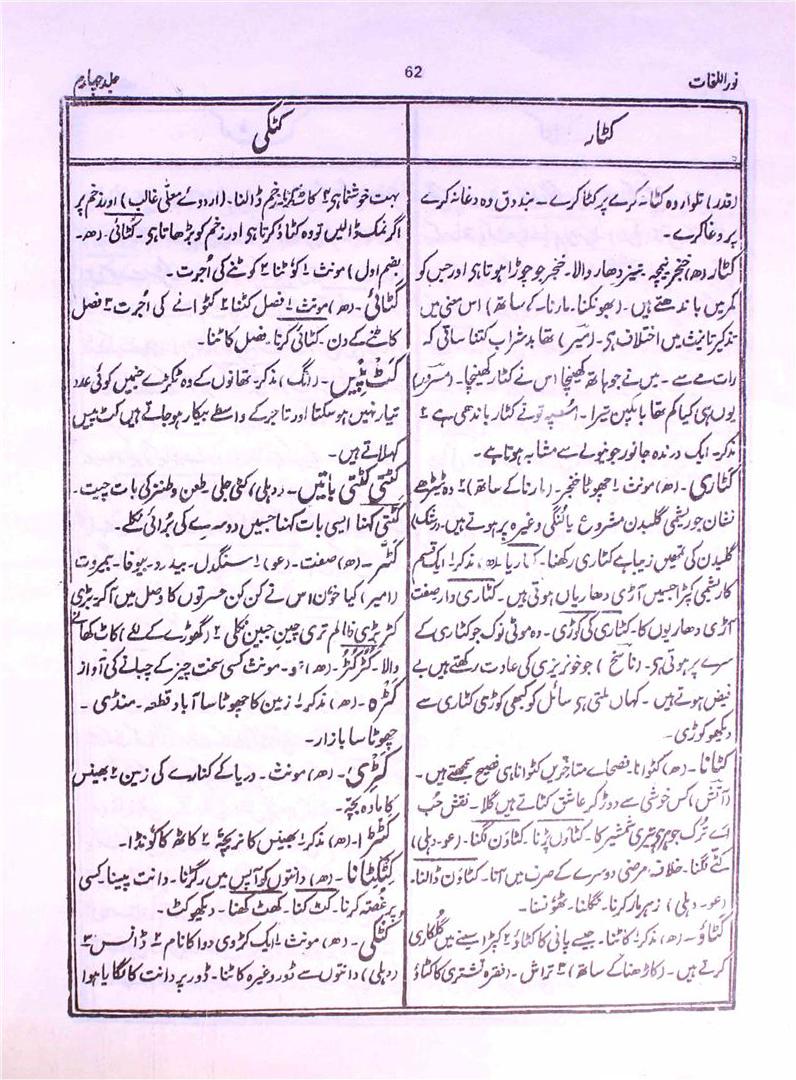 نوراللغات
62
جلد چہارم
کٹار
کٹکی
(قدر) تلوار وہ کٹا نہ کرے پر کٹا کرے۔ بندوق وہ دغا نہ کرے
پر دغا کرے۔
کٹار (ھ) خنجر نیمچہ۔ تیز دھار والا۔ خنجر جو چوڑا ہوتا ہی اور جس کو
کمر میں باندھتے ہیں۔ (بھونکنا۔ مارنا۔ کے ساتھ) اس معنی میں
تذکیر تانیث میں اختلاف ہی۔ (میر) تھا بد شراب کتنا ساقی کہ
رات مے سے۔ میں نے جو ہاتھ کھینچا اس نے کٹار کھینچا۔ (مسرور)
یوں ہی کیا کم تھا بانکپن تیرا۔ اسپہ تو نے کٹار باندھی ہے ۲
مذکر۔ ایک درندہ جانور جو نیولے سے مشابہ ہوتا ہے۔
کٹاری۔ (ھ) مونث ۱ چھوٹا خنجر۔ (مارنا کے ساتھ) ۲ وہ ٹیڑھے
نشان جو ریشمی گلبدن مشروع یا لنگی وغیرہ پر ہوتے ہیں۔ (رشک)
گلبدن کی تمھیں زیبا ہے کٹاری رکھنا۔ (ھ) مذکر ۱ ایک قسم
کا ریشمی کپڑا جسمیں آڑی دھاریاں ہوتی ہیں۔ کٹاری دار صفت
آڑی دھاریوں کا۔ کٹاری کی کوڑی۔ وہ موٹی نوک جو کٹاری کے
سرے پر ہوتی ہی۔ (ناسخ) جو خونریزی کی عادت رکھتے ہیں بے
فیض ہوتے ہیں۔ کہاں ملتی ہی سائل کو کبھی کوڑی کٹاری سے
دیکھو کوڑی۔
کٹانا۔ (ھ) کٹوانا۔ فصحاے متاخرین کٹوانا ہی فصیح سمجھتے ہیں۔
(آتش) کس خوشی سے دوڑ کر عاشق کٹاتے ہیں گلا۔ نقش حُب
اے ترک جوہر ہی تری شمشیر کا۔ کٹاون پڑنا۔ کٹاؤن لگنا۔ (عو۔ دہلی)
کٹے لگنا۔ خلاف مرضی دوسرے کے صرف میں آنا۔ کٹاؤن ڈالنا۔
(عو۔ دہلی) زہر مار کرنا۔ نگلنا۔ ٹھونسنا۔
کٹاؤ۔ (ھ) مذکر ۱ کاٹنا۔ جیسے پانی کا کٹاؤ ۲ کپڑا سینے میں گلکاری
کرتے ہیں۔ (کاڑھنا کے ساتھ) ۳ تراش۔ (فقرہ) تشتری کا کٹاؤ
بہت خوشنما ہی ۴ کاٹ کر زخم ڈالنا۔ (اردوئے معلی غالب) اور زخم پر
اگر نمک ڈالیں تو وہ کٹاؤ کرتا ہی اور زخم کو بڑھاتا ہی۔ کٹائی۔ (ھ۔
بضم اول) مونث ۱ کوٹنا ۲ کوٹنے کی اُجرت۔
کٹائی۔ (ھ) مونث ۱ فصل کٹنا ۲ کٹوانے کی اُجرت ۳ فصل
کاٹنے کے دن۔ کٹائی کرنا۔ فصل کاٹنا۔
کٹ پیس۔ (انگ) مذکر۔ تھانوں کے وہ ٹکڑے جنمیں کوئی عدد
تیار نہیں ہو سکتا اور تاجر کے واسطے بیکار ہو جاتے ہیں کٹ پیس
کہلاتے ہیں۔
کٹتی کٹتی باتیں۔ (دہلی) کٹی جلی۔ طعن و طنز کی بات چیت۔
کٹتی کہنا ایسی بات کہنا جسمیں دوسرے کی بُرائی نکلے۔
کٹر۔ (ھ) صفت۔ (عو) ۱ سنگدل۔ بیدرد۔ بیوفا۔ بیمروت
(امیر) کیا خون اس نے کن کن حسرتوں کا وصل میں آکر۔ بڑی
کٹر بڑی ظالم تری چین جبین نکلی ۲ (گھوڑے کے لئے) کاٹ کھانے
والا۔ کُڑکُڑ۔ (ھ) و۔ مونث کسی سخت چیز کے چبانے کی آواز
کٹرہ۔ (ھ) مذکر ۱ زمین کا چھوٹا سا آباد قطعہ۔ منڈی۔
چھوٹا سا بازار۔
کٹری۔ (ھ) مونث۔ دریا کے کنارے کی زمین ۲ بھینس
کا مادہ بچہ۔
کٹڑا۔ (ھ) مذکر ۱ بھینس کا نر بچہ ۲ کاٹھ کا کونڈا۔
کٹکٹانا۔ (ھ) دانتوں کو آپس میں رگڑنا۔ دانت پیسنا کسی
پر غصہ کرنا۔ کٹ کٹنا۔ کھٹ کھنا۔ دیکھو کٹ۔
کٹکی۔ (ھ) مونث ۱ ایک کڑوی دوا کا نام ۲ ڈانس ۳
(دہلی) دانتوں سے ڈور وغیرہ کا ٹنا۔ ڈور پر دانت کا لگایا ہوا